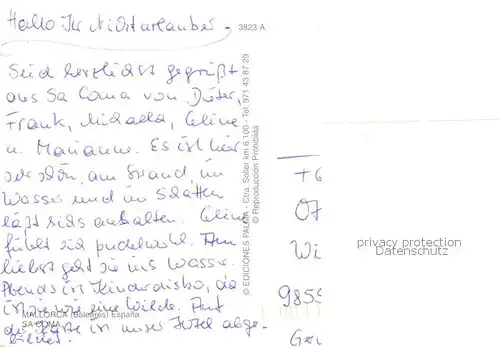 Hallo Ihr Nichturlauber -
3823 A
Seid herzlichst gegrüßt
aus Sa Coma von Dieter,
Frank, Michaela, Celine
u. Marianne. Es ist hier
sehr schön, am Strand, im
Wasser und im Schatten
läßt sichs aushalten. Celine
fühlt sich pudelwohl. Am
liebsten geht sie ins Wasser.
Abends ist Kinderdisko, da
ist sie wie eine Wilde. Auf
der Karte ist unser Hotel abge-
bildet.
MALLORCA (Baleares) España
SA COMA
© EDICIONES PALMA - Ctra. Soller km. 6,100 - Tel. 971 43 87 29
© Reproducción Prohibida
Wi
9855
privacy protection
Dansk Stores